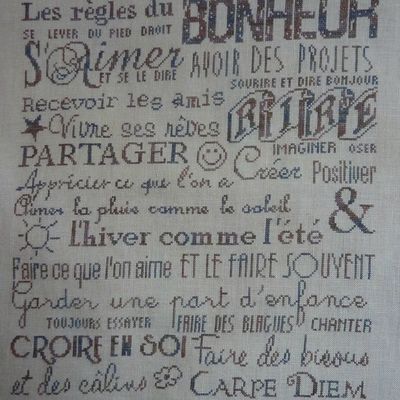 Les règles du BONHEUR
SE LEVER DU PIED DROIT
S'Aimer ET SE LE DIRE AVOIR DES PROJETS
SOURIRE ET DIRE BONJOUR
Recevoir les amis
Vivre ses rêves RIRE
IMAGINER OSER
PARTAGER Créer Positiver
Apprécier ce que l'on a
Aimer la pluie comme le soleil &
L'hiver comme l'été
Faire ce que l'on aime ET LE FAIRE SOUVENT
Garder une part d'enfance
TOUJOURS ESSAYER FAIRE DES BLAGUES CHANTER
CROIRE EN SOI Faire des bisous
et des câlins CARPE DIEM